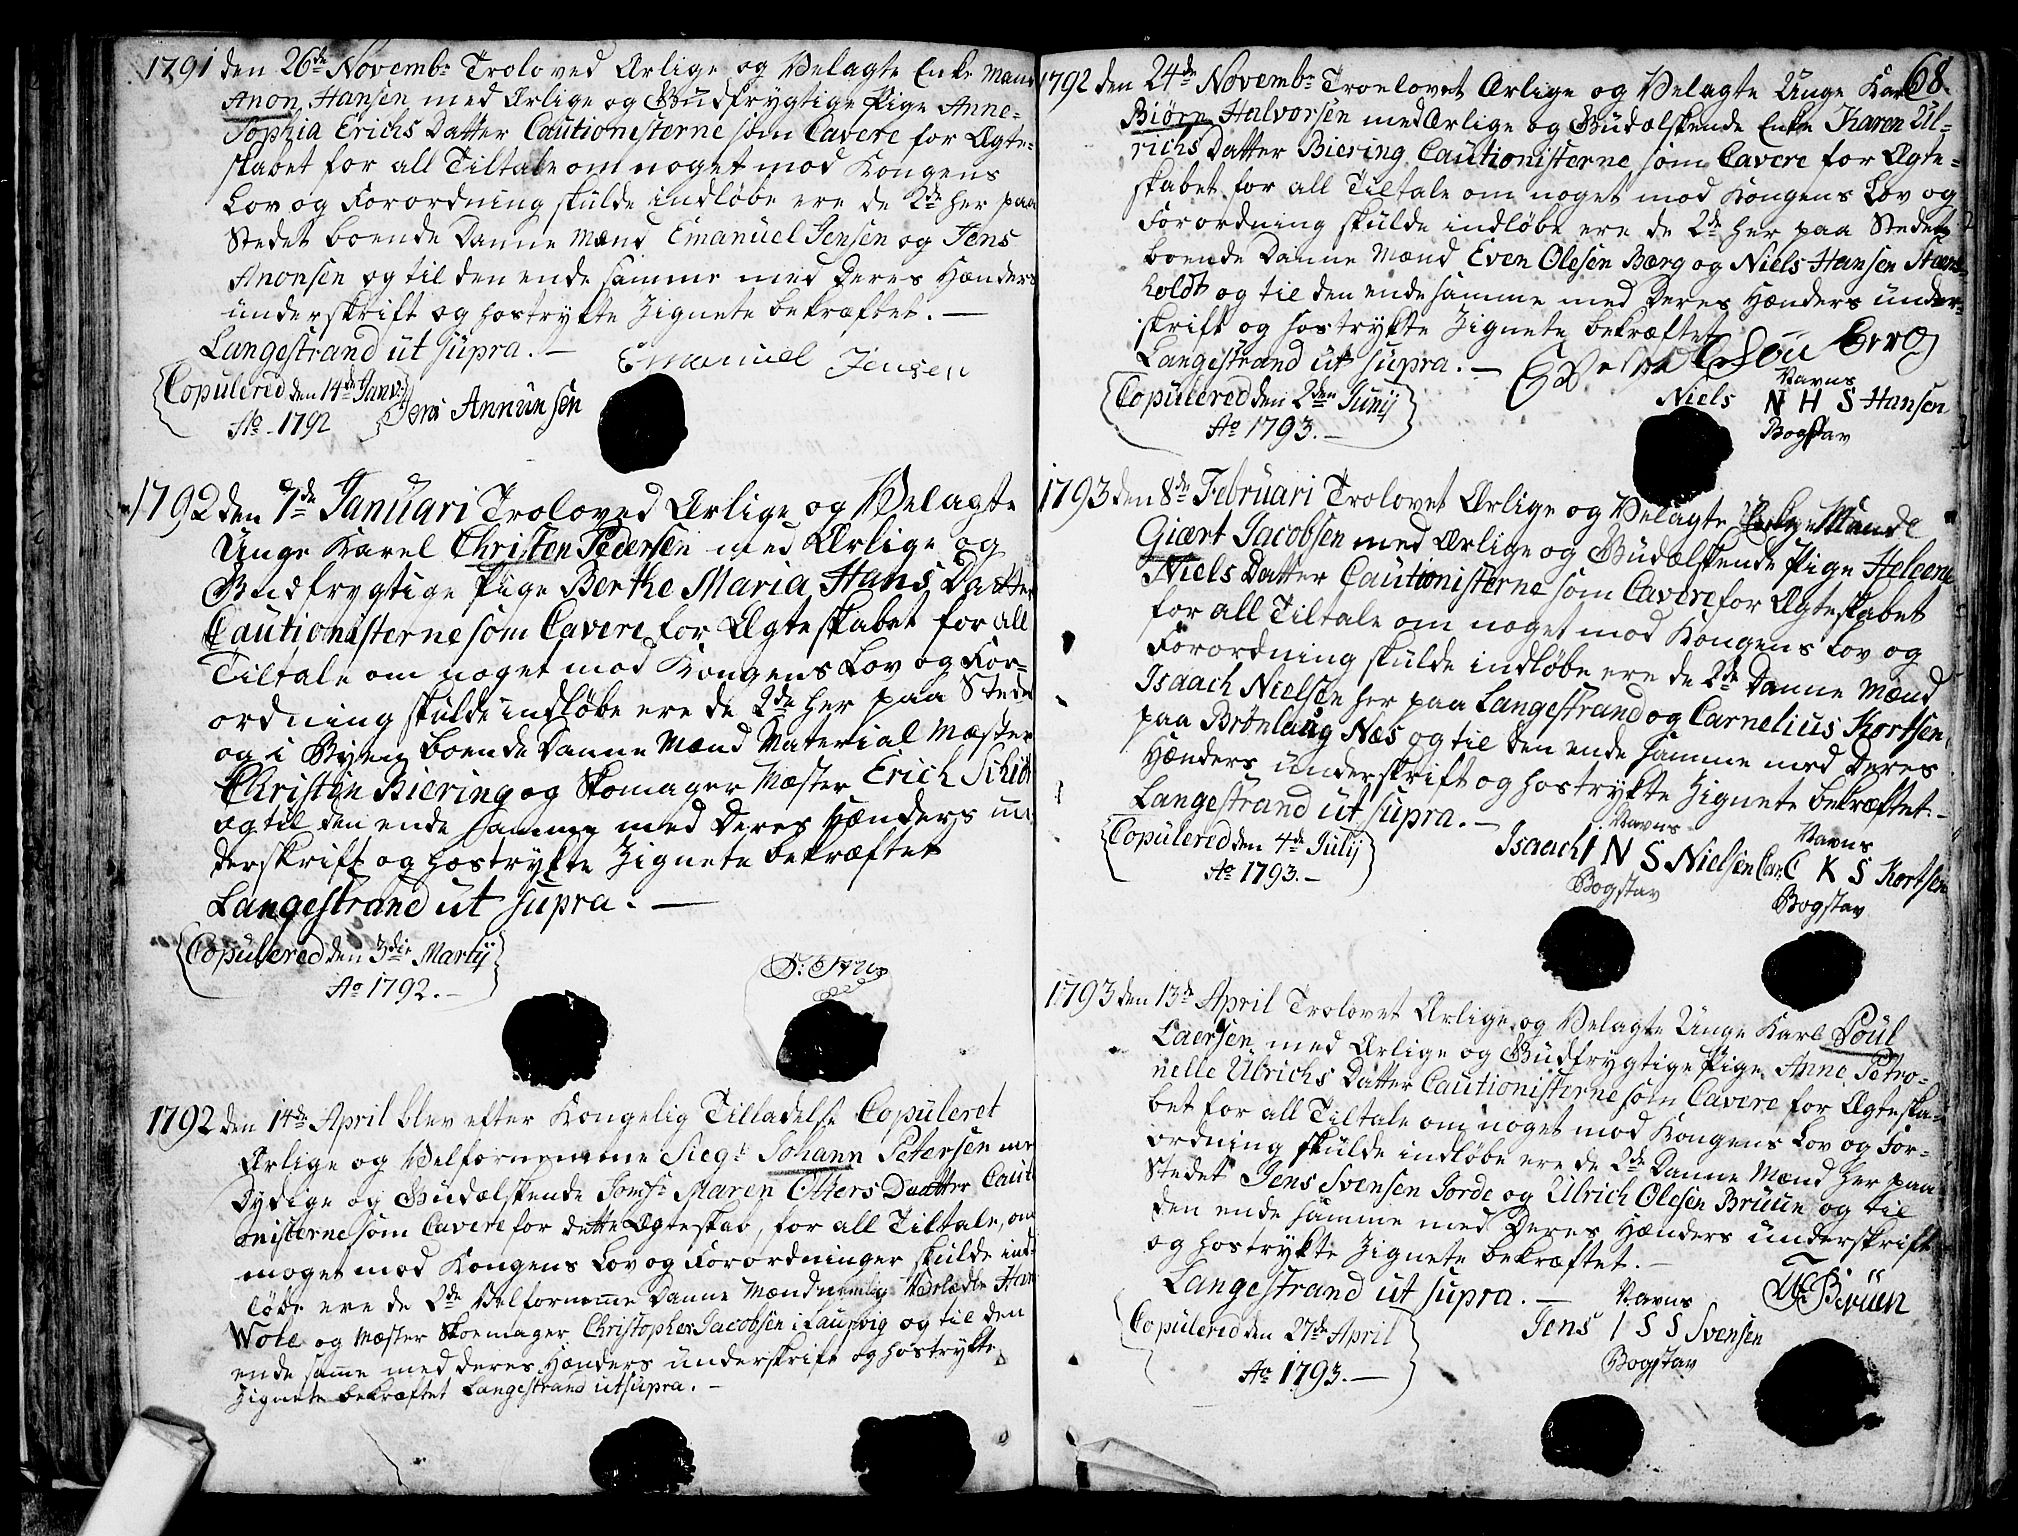 1791 den 26de Novembr Troloved Ærlige og Velagte Enke Mand
Anon Hansen med Ærlige og Gudfrygtige Pige Anne
Sophia Erichs Datter Cautionisterne som Cavere for Ægte-
skabet for all Tiltale om noget mod Kongens
Lov og Forordning skulde indløbe ere de 2de her paa
Stedet boende Danne Mænd Emanuel Jensen og Jens
Anonsen og til den ende samme med Deres Hænders
underskrift og hostrykte Zignete bekræftet. —
Langestrand ut supra. —
Emanuel Jensen
Copulered den 14de Janv:
Ao 1792
Jens Annunsen
1792 den 7de Januari Troloved Ærlige og Velagte
Unge Karel Christen Pedersen med Ærlige og
Gudfrygtige Pige Berthe Maria Hans Datter
Cautionisterne som Cavere for Ægteskabet for all
Tiltale om noget mod Kongens Lov og For-
ordning skulde indløbe ere de 2de her paa Stedet
og i Byen boende Danne Mænd Material Mæster
Christen Biering og Skomager Mæster Erich Schiøt
og til den ende samme med Deres Hænders un
derskrift og hostrykte Zignete bekræftet
Langestrand ut supra. —
Copulered den 3die Martij
Ao 1792. —
1792 den 14de April blev efter Kongelig Tilladelse Copuleret
Ærlige og Velfornemme Siegr Johann Petersen med
Dydige og Gudælskende Jomfr Maren Olters Daatter Cauti
onisterne som Cavere for dette Ægteskab, for all Tiltale, om
noget mod Kongens Lov og Forordninger skulde ind-
løbe ere de 2de Velfornemme Danne Mænd nemlig Han
Wole og Mæster Skoemager Christopher Jacobsen i Laurvig og til den
ende samme med deres Hænders underskrift og hostrykte
Zignete bekræftet Langestrand ut supra. —
68
1792 den 24de Novembr Troelovet Ærlige og Velagte Unge Karl
Biørn Halvorsen med Ærlige og Gudælskende Enke Karen Ul-
richs Datter Biering Cautionisterne som Cavere for Ægte-
skabet for all Tiltale om noget mod Kongens Lov og
Forordning skulde indløbe ere de 2de her paa Stedet
boende Danne Mænd Even Olesen Bærg og Niels Hansen
holdt og til den ende samme med Deres Hænders under-
skrift og hostrykte Zignete bekræftet
Langestrand ut supra. —
Copulered den 2den Junij
Ao 1793. —
Navns
Niels N H S Hansen
Bogstav
1793 den 8de Februari Trolovet Ærlige og Velagte Enke Mand
Giært Jacobsen med Ærlige og Gudælskende Pige Heleene
Niels Datter Cautionisterne som Cavere for Ægteskabet
for all Tiltale om noget mod Kongens Lov og
Forordning skulde indløbe ere de 2de Danne Mænd
Isaach Nielsen her paa Langestrand og Carnelius Kortsen
paa Brønlaug Næs og til den ende samme med Deres
Hænders underskrift og hostrykte Zignete bekræftet. —
Langestrand ut supra. —
Copulered den 4de Julij
Ao 1793. —
Navns
Isaach I N S Nielsen
Bogstav
Navns
Car: C K S Kortsen
Bogstav
1793 den 13de April Trolovet Ærlige og Velagte Unge Karl Poul
Laersen med Ærlige og Gudfrygtige Pige Anne Petro-
nelle Ulrichs Datter Cautionisterne som Cavere for Ægteska-
bet for all Tiltale om noget mod Kongens Lov og For-
ordning skulde indløbe ere de 2de Danne Mænd her paa
Stedet Jens Svensen Jorde og Ulrich Olesen Bruun og til
den ende samme med Deres Hænders underskrift
og hostrykte Zignete bekræftet. —
Langestrand ut supra. —
Copulered den 27de April
Ao 1793. —
Navns
Jens I S S Svensen
Bogstav